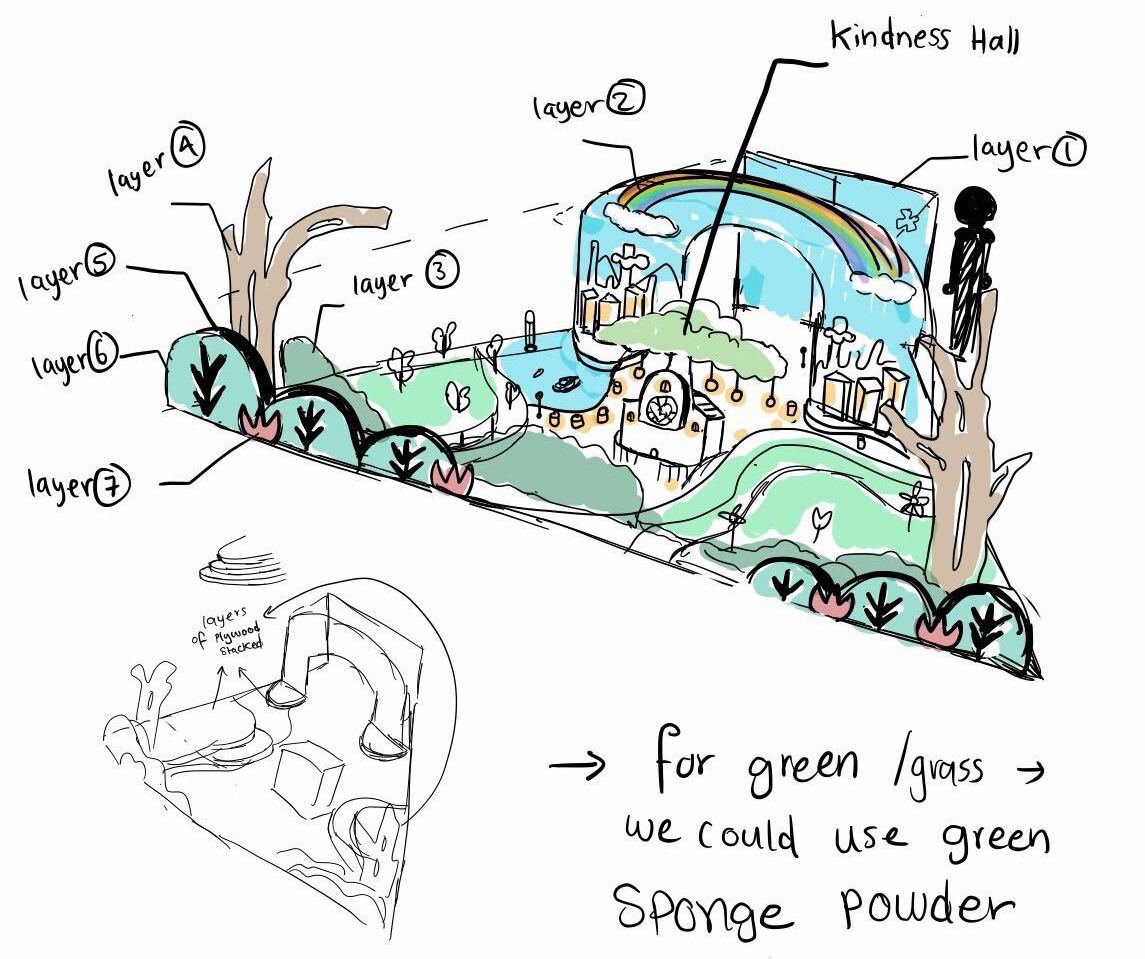 Kindness Hall
layer ②
layer ①
layer ④
layer ⑤
layer ③
layer ⑥
layer ⑦
layers
of Plywood
Stacked
→ for green /grass →
we could use green
Sponge Powder